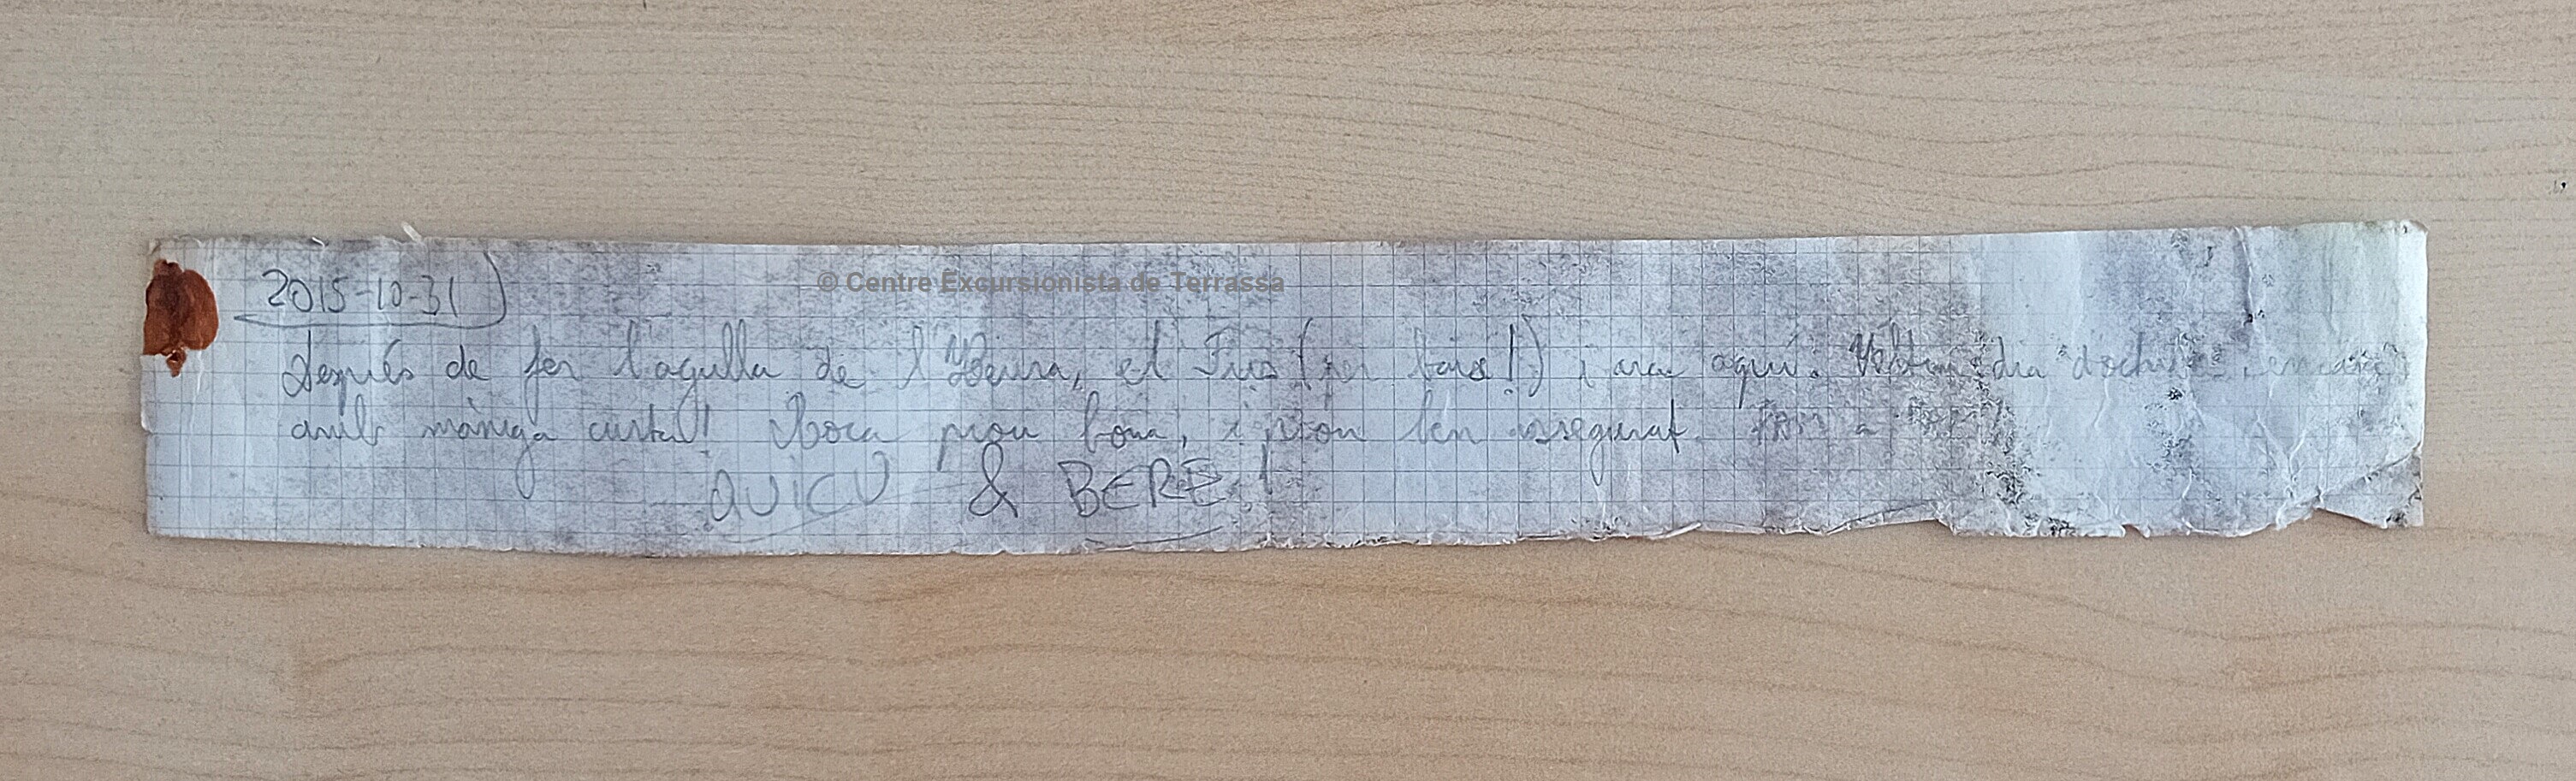 2015-10-31
© Centre Excursionista de Terrassa
Després de fer l'agulla de l'Heura, el Fus (per baix!) i ara aquí. dia d'octubre encara
amb màniga curta! Roca prou bona, i prou ben assegurat.
QUICU & BERE!